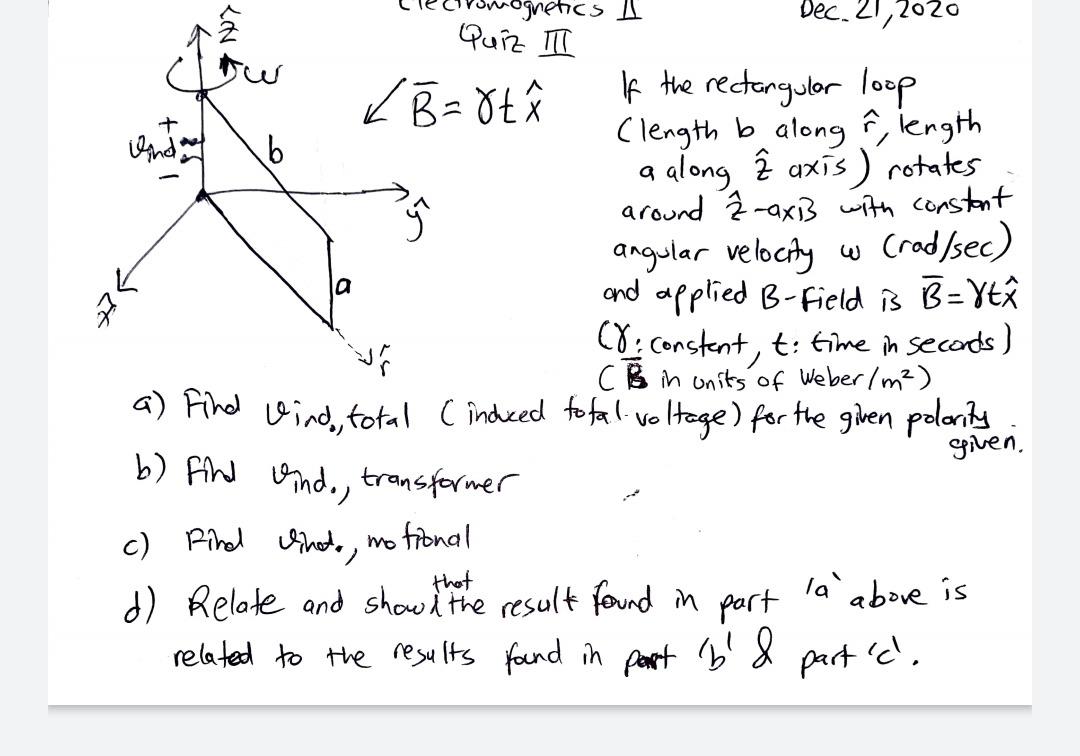 Electromagnetics II
Dec. 21, 2020
Quiz III
ẑ
w
B̄ = γt x̂
+
Vind
−
b
ŷ
a
x̂
r̂
If the rectangular loop
(length b along r̂, length
a along ẑ axis) rotates
around ẑ-axis with constant
angular velocity w (rad/sec)
and applied B-field is B̄ = γt x̂
(γ: constant, t: time in seconds)
(B̄ in units of Weber/m²)
a) Find Vind., total (induced total voltage) for the given polarity
given.
b) Find Vind., transformer
c) Find Vind., motional
d) Relate and show that the result found in part 'a' above is
related to the results found in part 'b' & part 'c'.